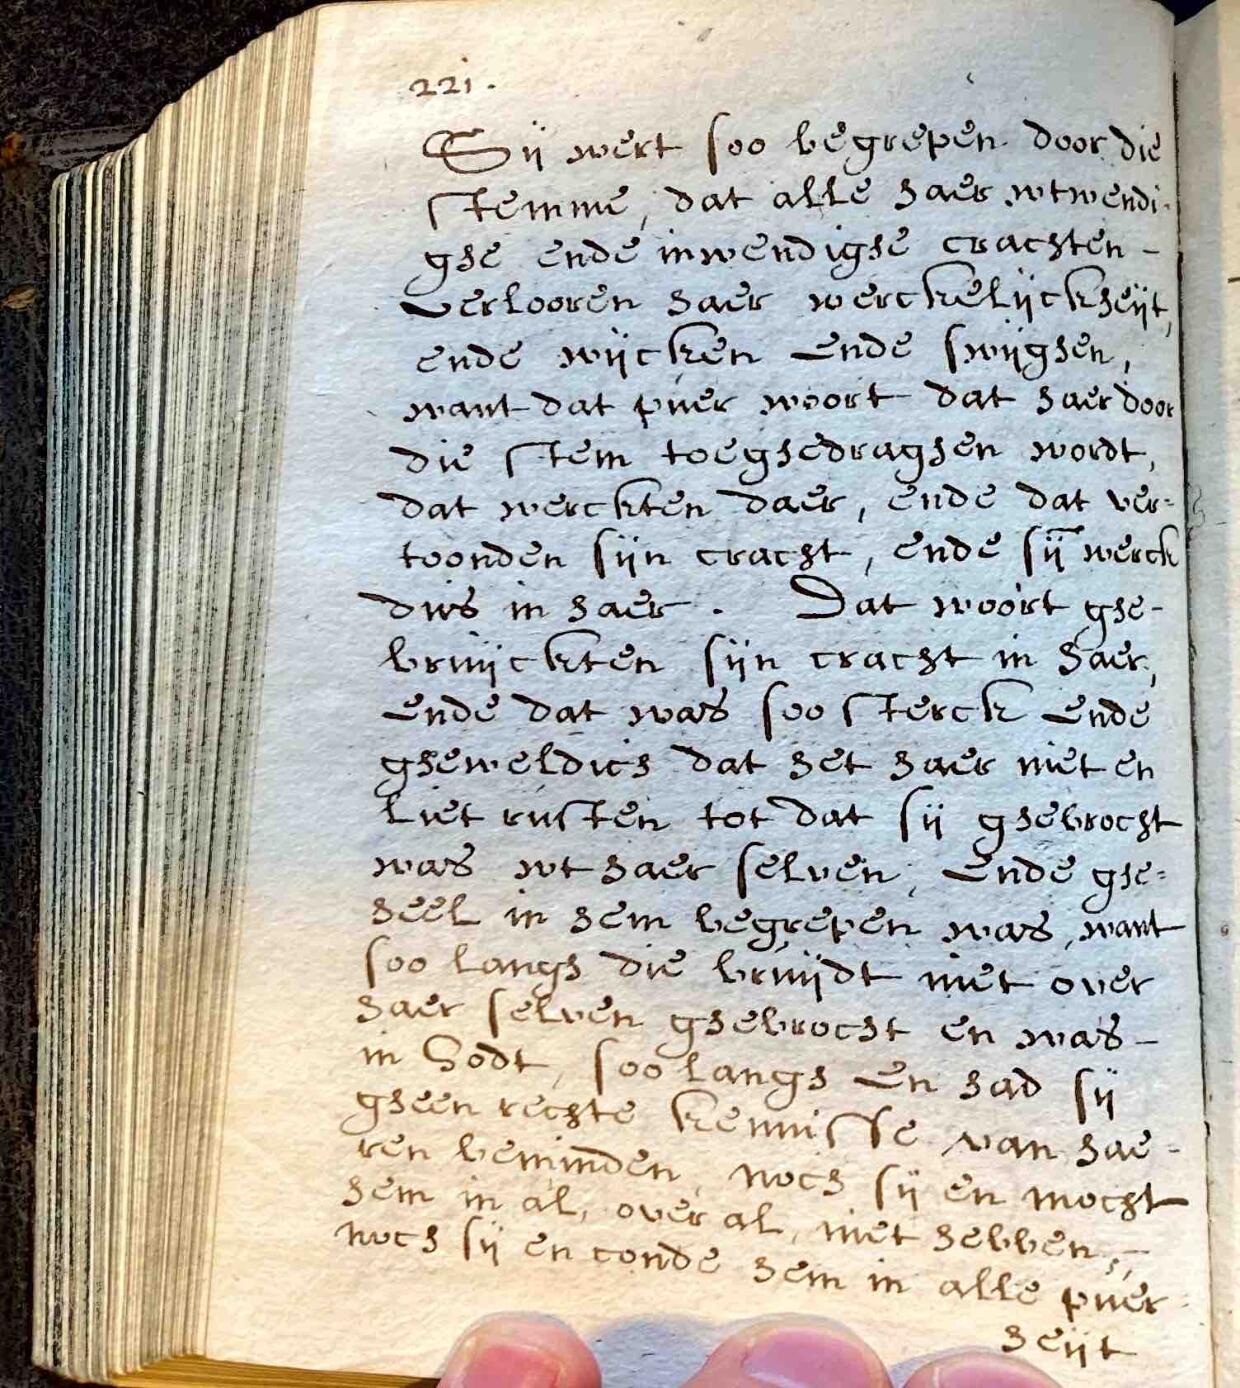 221.
Sij wert soo begrepen door die
stemme, dat alle haer wtwendi-
ghe ende inwendighe crachten -
verlooren haer werckelijckheijt,
ende wijcken ende swijghen,
want dat puer woort dat haer door
die stem toeghedraghen wordt,
dat werckten daer, ende dat ver-
toonden sijn cracht, ende sij̄ werck
dws in haer. Dat woort ghe-
bruijckten sijn cracht in haer,
ende dat was soo sterck ende
gheweldich dat het haer niet en
liet rusten tot dat sij ghebrocht
was wt haer selven, ende ghe-
heel in hem begrepen was, want
soo langh die bruijdt niet over
haer selven ghebrocht en was -
in Godt, soo langh en had sij
gheen rechte kennisse van hae-
ren beminden, noch sij en mocht
hem in al, over al, niet hebben,
noch sij en conde hem in alle puer-
heijt